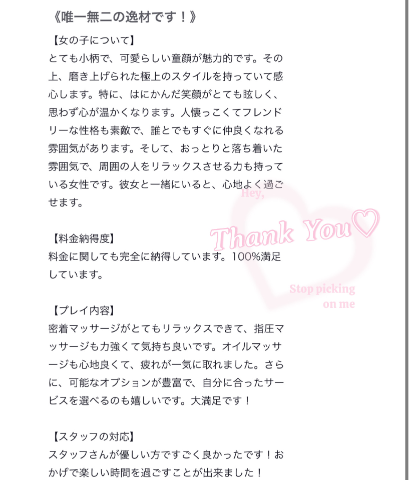 《唯一無二の逸材です！》
【女の子について】
とても小柄で、可愛らしい童顔が魅力的です。その
上、磨き上げられた極上のスタイルを持っていて感
心します。特に、はにかんだ笑顔がとても眩しく、
思わず心が温かくなります。人懐っこくてフレンド
リーな性格も素敵で、誰とでもすぐに仲良くなれる
雰囲気があります。そして、おっとりと落ち着いた
雰囲気で、周囲の人をリラックスさせる力も持って
いる女性です。彼女と一緒にいると、心地よく過ご
せます。
Hey,
【料金納得度】
Thank You♡
料金に関しても完全に納得しています。100%満足
しています。
Stop picking
on me
【プレイ内容】
密着マッサージがとてもリラックスできて、指圧マ
ッサージも力強くて気持ち良いです。オイルマッサ
ージも心地良くて、疲れが一気に取れました。さら
に、可能なオプションが豊富で、自分に合ったサー
ビスを選べるのも嬉しいです。大満足です！
【スタッフの対応】
スタッフさんが優しい方ですごく良かったです！お
かげで楽しい時間を過ごすことが出来ました！